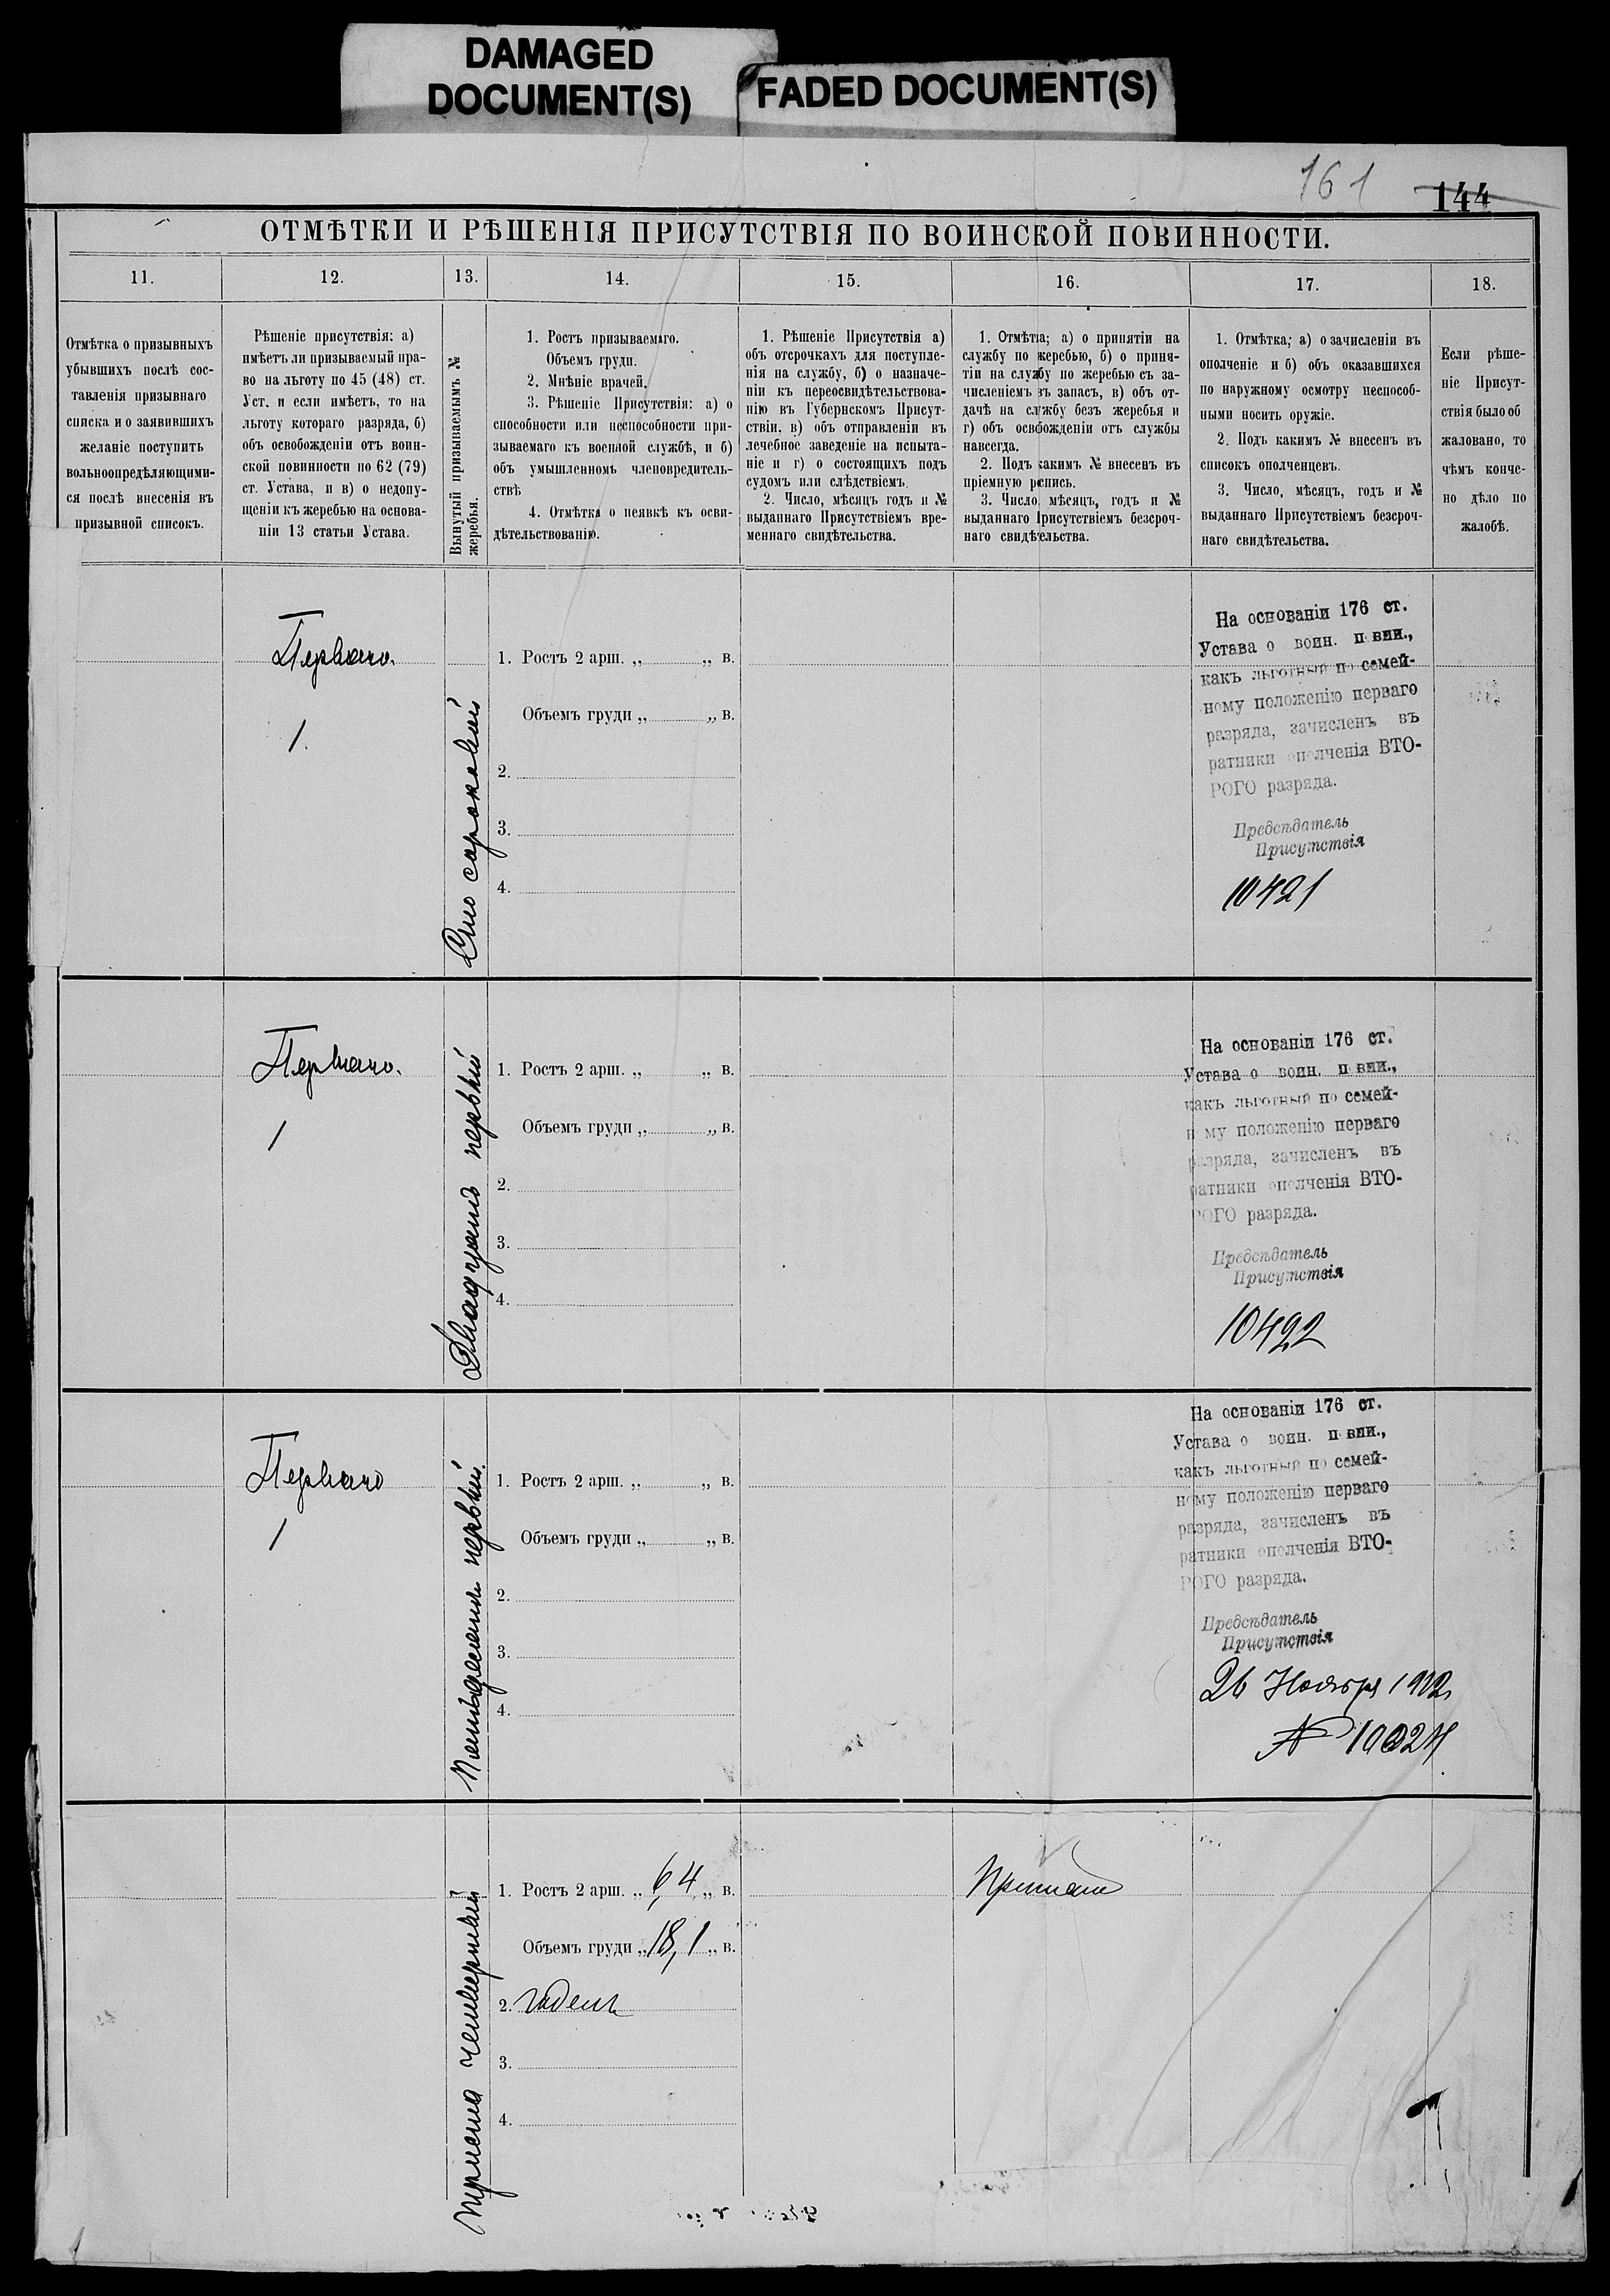 DAMAGED
DOCUMENT(S)
FADED DOCUMENT(S)
161
144
ОТМѢТКИ И РѢШЕНІЯ ПРИСУТСТВІЯ ПО ВОИНСКОЙ ПОВИННОСТИ.
11.
12.
13.
14.
15.
16.
17.
18.
Отмѣтка о призывныхъ
убывшихъ послѣ сос-
тавленія призывнаго
списка и о заявившихъ
желаніе поступить
вольноопредѣляющими-
ся послѣ внесенія въ
призывной списокъ.
Рѣшеніе присутствія: а)
имѣетъ ли призываемый пра-
во на льготу по 45 (48) ст.
Уст. и если имѣетъ, то на
льготу котораго разряда, б)
объ освобожденіи отъ воин-
ской повинности по 62 (79)
ст. Устава, и в) о недопу-
щеніи къ жеребью на основа-
ніи 13 статьи Устава.
Вынутый призываемымъ №
жеребья.
1. Ростъ призываемаго.
Объемъ груди.
2. Мнѣніе врачей.
3. Рѣшеніе Присутствія: а) о
способности или неспособности при-
зываемаго къ военной службѣ, и б)
объ умышленномъ членовредитель-
ствѣ
4. Отмѣтка о неявкѣ къ осви-
дѣтельствованію.
1. Рѣшеніе Присутствія а)
объ отсрочкахъ для поступле-
нія на службу, б) о назначе-
ніи къ переосвидѣтельствова-
нію въ Губернскомъ Присут-
ствіи, в) объ отправленіи въ
лечебное заведеніе на испыта-
ніе и г) о состоящихъ подъ
судомъ или слѣдствіемъ.
2. Число, мѣсяцъ годъ и №
выданнаго Присутствіемъ вре-
меннаго свидѣтельства.
1. Отмѣтка; а) о принятіи на
службу по жеребью, б) о приня-
тіи на службу по жеребью съ за-
численіемъ въ запасъ, в) объ от-
дачѣ на службу безъ жеребья и
г) объ освобожденіи отъ службы
навсегда.
2. Подъ какимъ № внесенъ въ
пріемную роспись.
3. Число, мѣсяцъ, годъ и №
выданнаго Присутствіемъ безсроч-
наго свидѣтельства.
1. Отмѣтка; а) о зачисленіи въ
ополченіе и б) объ оказавшихся
по наружному осмотру неспособ-
ными носить оружіе.
2. Подъ какимъ № внесенъ въ
списокъ ополченцевъ.
3. Число, мѣсяцъ, годъ и №
выданнаго Присутствіемъ безсроч-
наго свидѣтельства.
Если рѣше-
ніе Присут-
ствія было об
жаловано, то
чѣмъ конче-
но дѣло по
жалобѣ.
Перваго.
1.
Сто сороковый
1. Ростъ 2 арш. „ „ в.
Объемъ груди „ „ в.
2.
3.
4.
На основаніи 176 ст.
Устава о воин. повин.,
какъ льготный по семей-
ному положенію перваго
разряда, зачисленъ въ
ратники ополченія ВТО-
РОГО разряда.
Предсѣдатель
Присутствія
10421
Перваго.
1
Двадцать первый
1. Ростъ 2 арш. „ „ в.
Объемъ груди „ „ в.
2.
3.
4.
На основаніи 176 ст.
Устава о воин. повин.,
какъ льготный по семей-
ному положенію перваго
разряда, зачисленъ въ
ратники ополченія ВТО-
РОГО разряда.
Предсѣдатель
Присутствія
10422
Перваго
1
Пятьдесятъ первый.
1. Ростъ 2 арш. „ „ в.
Объемъ груди „ „ в.
2.
3.
4.
На основаніи 176 ст.
Устава о воин. повин.,
какъ льготный по семей-
ному положенію перваго
разряда, зачисленъ въ
ратники ополченія ВТО-
РОГО разряда.
Предсѣдатель
Присутствія
26 Ноября 1912
№
Триста четвертый
1. Ростъ 2 арш. „ 6,4 „ в.
Объемъ груди „ 18,1 „ в.
2. Годенъ
3.
4.
Принятъ